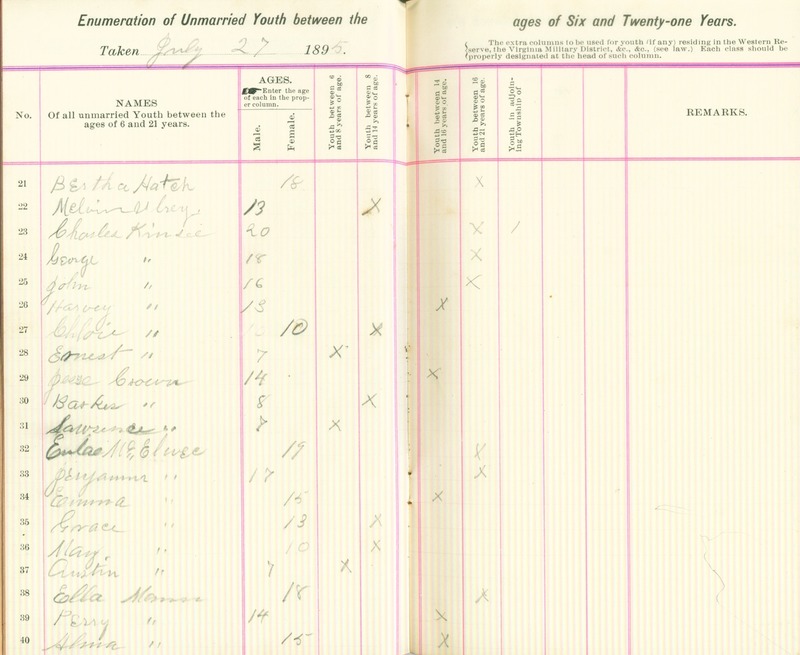 Enumeration of Unmarried Youth between the ages of Six and Twenty-one Years.
Taken July 27 1895.
The extra columns to be used for youth (if any) residing in the Western Re-
serve, the Virginia Military District, &c., &c., (see law.) Each class should be
properly designated at the head of such column.
No.
NAMES
Of all unmarried Youth between the
ages of 6 and 21 years.
AGES.
Enter the age
of each in the prop-
er column.
Male.
Female.
Youth between 6
and 8 years of age.
Youth between 8
and 14 years of age.
Youth between 14
and 16 years of age.
Youth between 16
and 21 years of age.
Youth in adjoin-
ing Township of
REMARKS.
21 Bertha Hatch 18 X
22 Melvin 13 X
23 Charles Kinsie 20 X /
24 George " 18 X
25 John " 16 X
26 Harvey " 13 X
27 Chloie " 10 X
28 Ernest " 7 X
29 Jesse Crown 14 X
30 Barker " 8 X
31 Lawrence " X
32 McElwee 19 X
33 Benjamin " 17 X
34 Emma " 15 X
35 Grace " 13 X
36 May " 10 X
37 Austin " 7 X
38 Ella 18 X
39 Perry " 14 X
40 Alma " 15 X